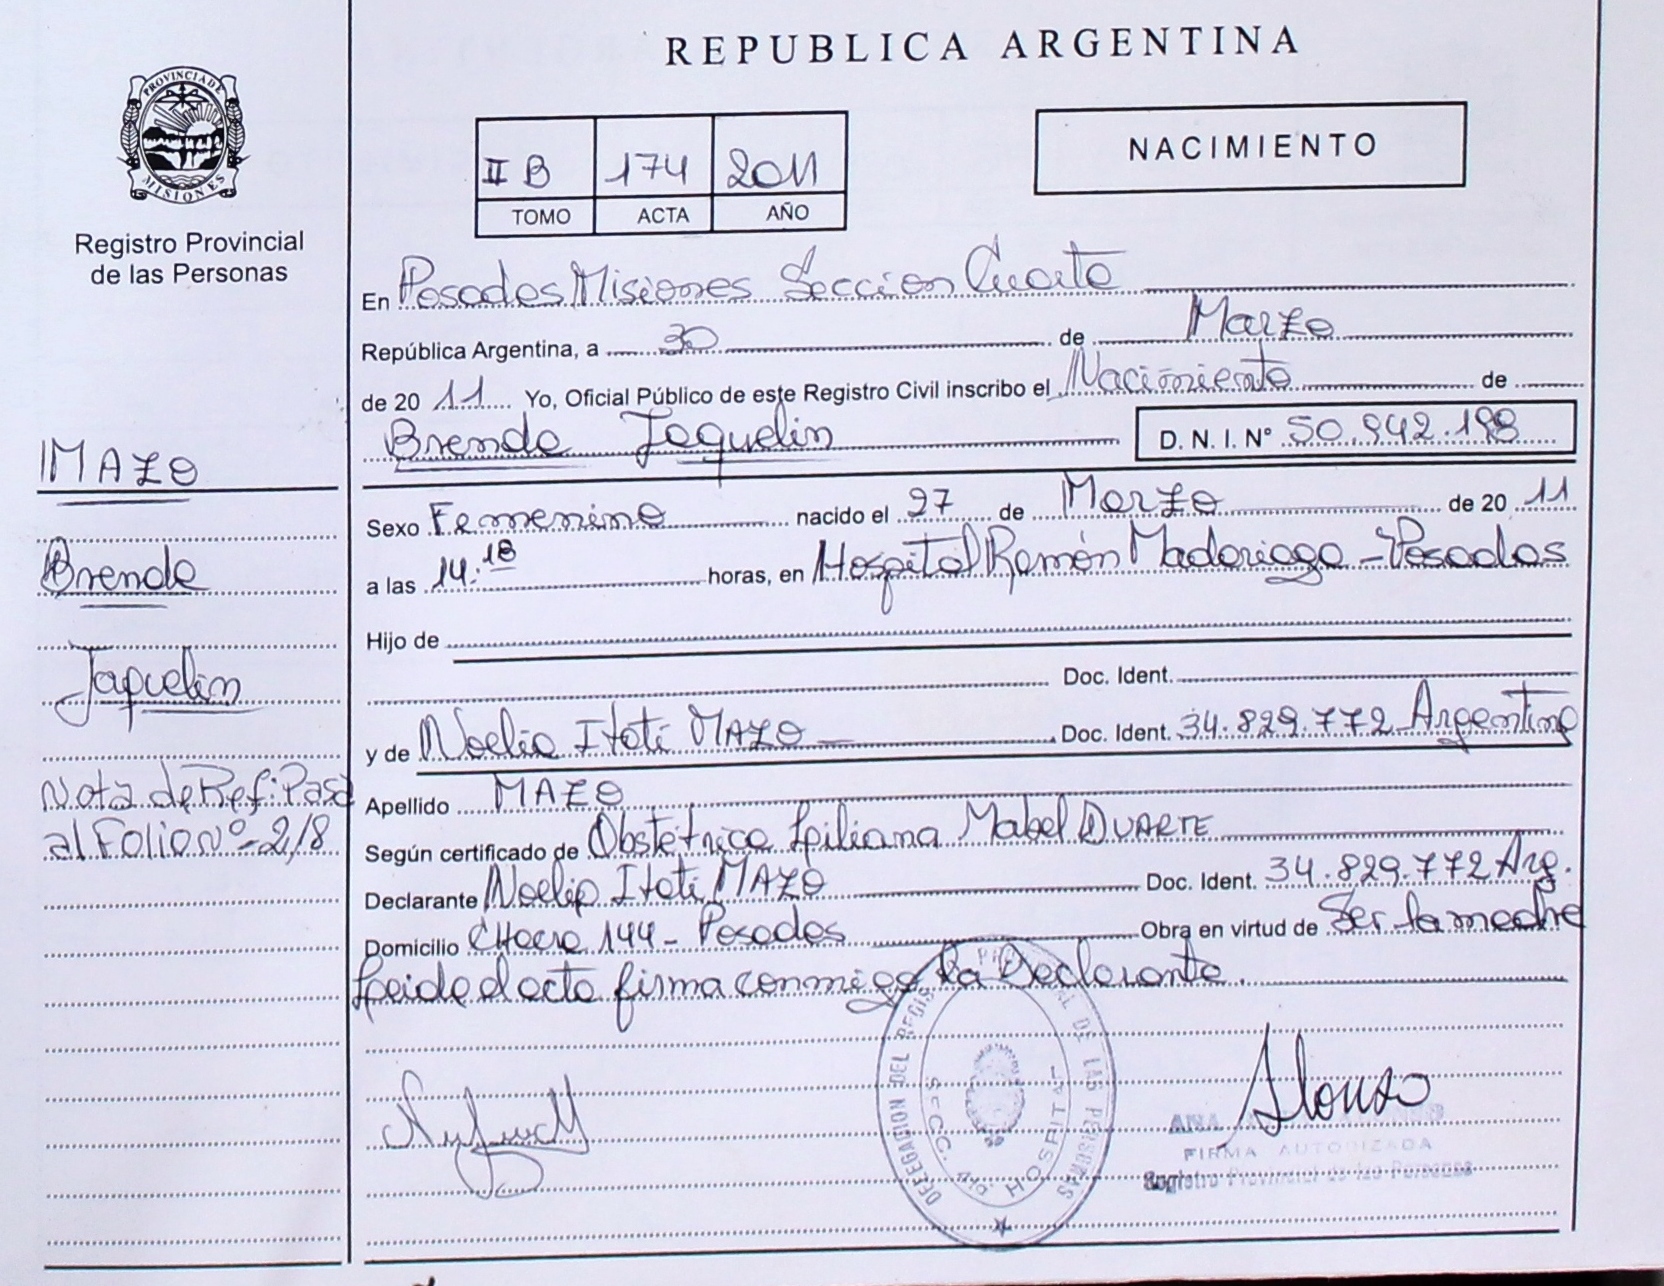 REPUBLICA ARGENTINA
PROVINCIA DE MISIONES
Registro Provincial
de las Personas
II B 174 2011
TOMO ACTA AÑO
NACIMIENTO
En Posadas Misiones Seccion Cuarta
República Argentina, a 30 de Marzo
de 2011 Yo, Oficial Público de este Registro Civil inscribo el Nacimiento de
Brenda Jaquelin D. N. I. N° 50.942.198
Sexo Femenino nacido el 27 de Marzo de 2011
a las 14.18 horas, en Hospital Ramón Madariaga - Posadas
Hijo de
Doc. Ident.
y de Noelia Itati MAZO Doc. Ident. 34.829.772 Argentina
Apellido MAZO
Según certificado de Obstétrica Liliana Mabel DUARTE
Declarante Noelia Itati MAZO Doc. Ident. 34.829.772 Arg.
Domicilio CHacra 144 - Posadas Obra en virtud de Ser la madre
Leida el acta firma conmigo la Declarante.
MAZO
Brenda
Jaquelin
Nota de Ref: Pasa
al Folio Nº- 2/8
DELEGACION DEL REGISTRO PROVINCIAL DE LAS PERSONAS
SECC. 4ta. HOSPITAL
Alonso
ANA
FIRMA AUTORIZADA
Registro Provincial de las Personas